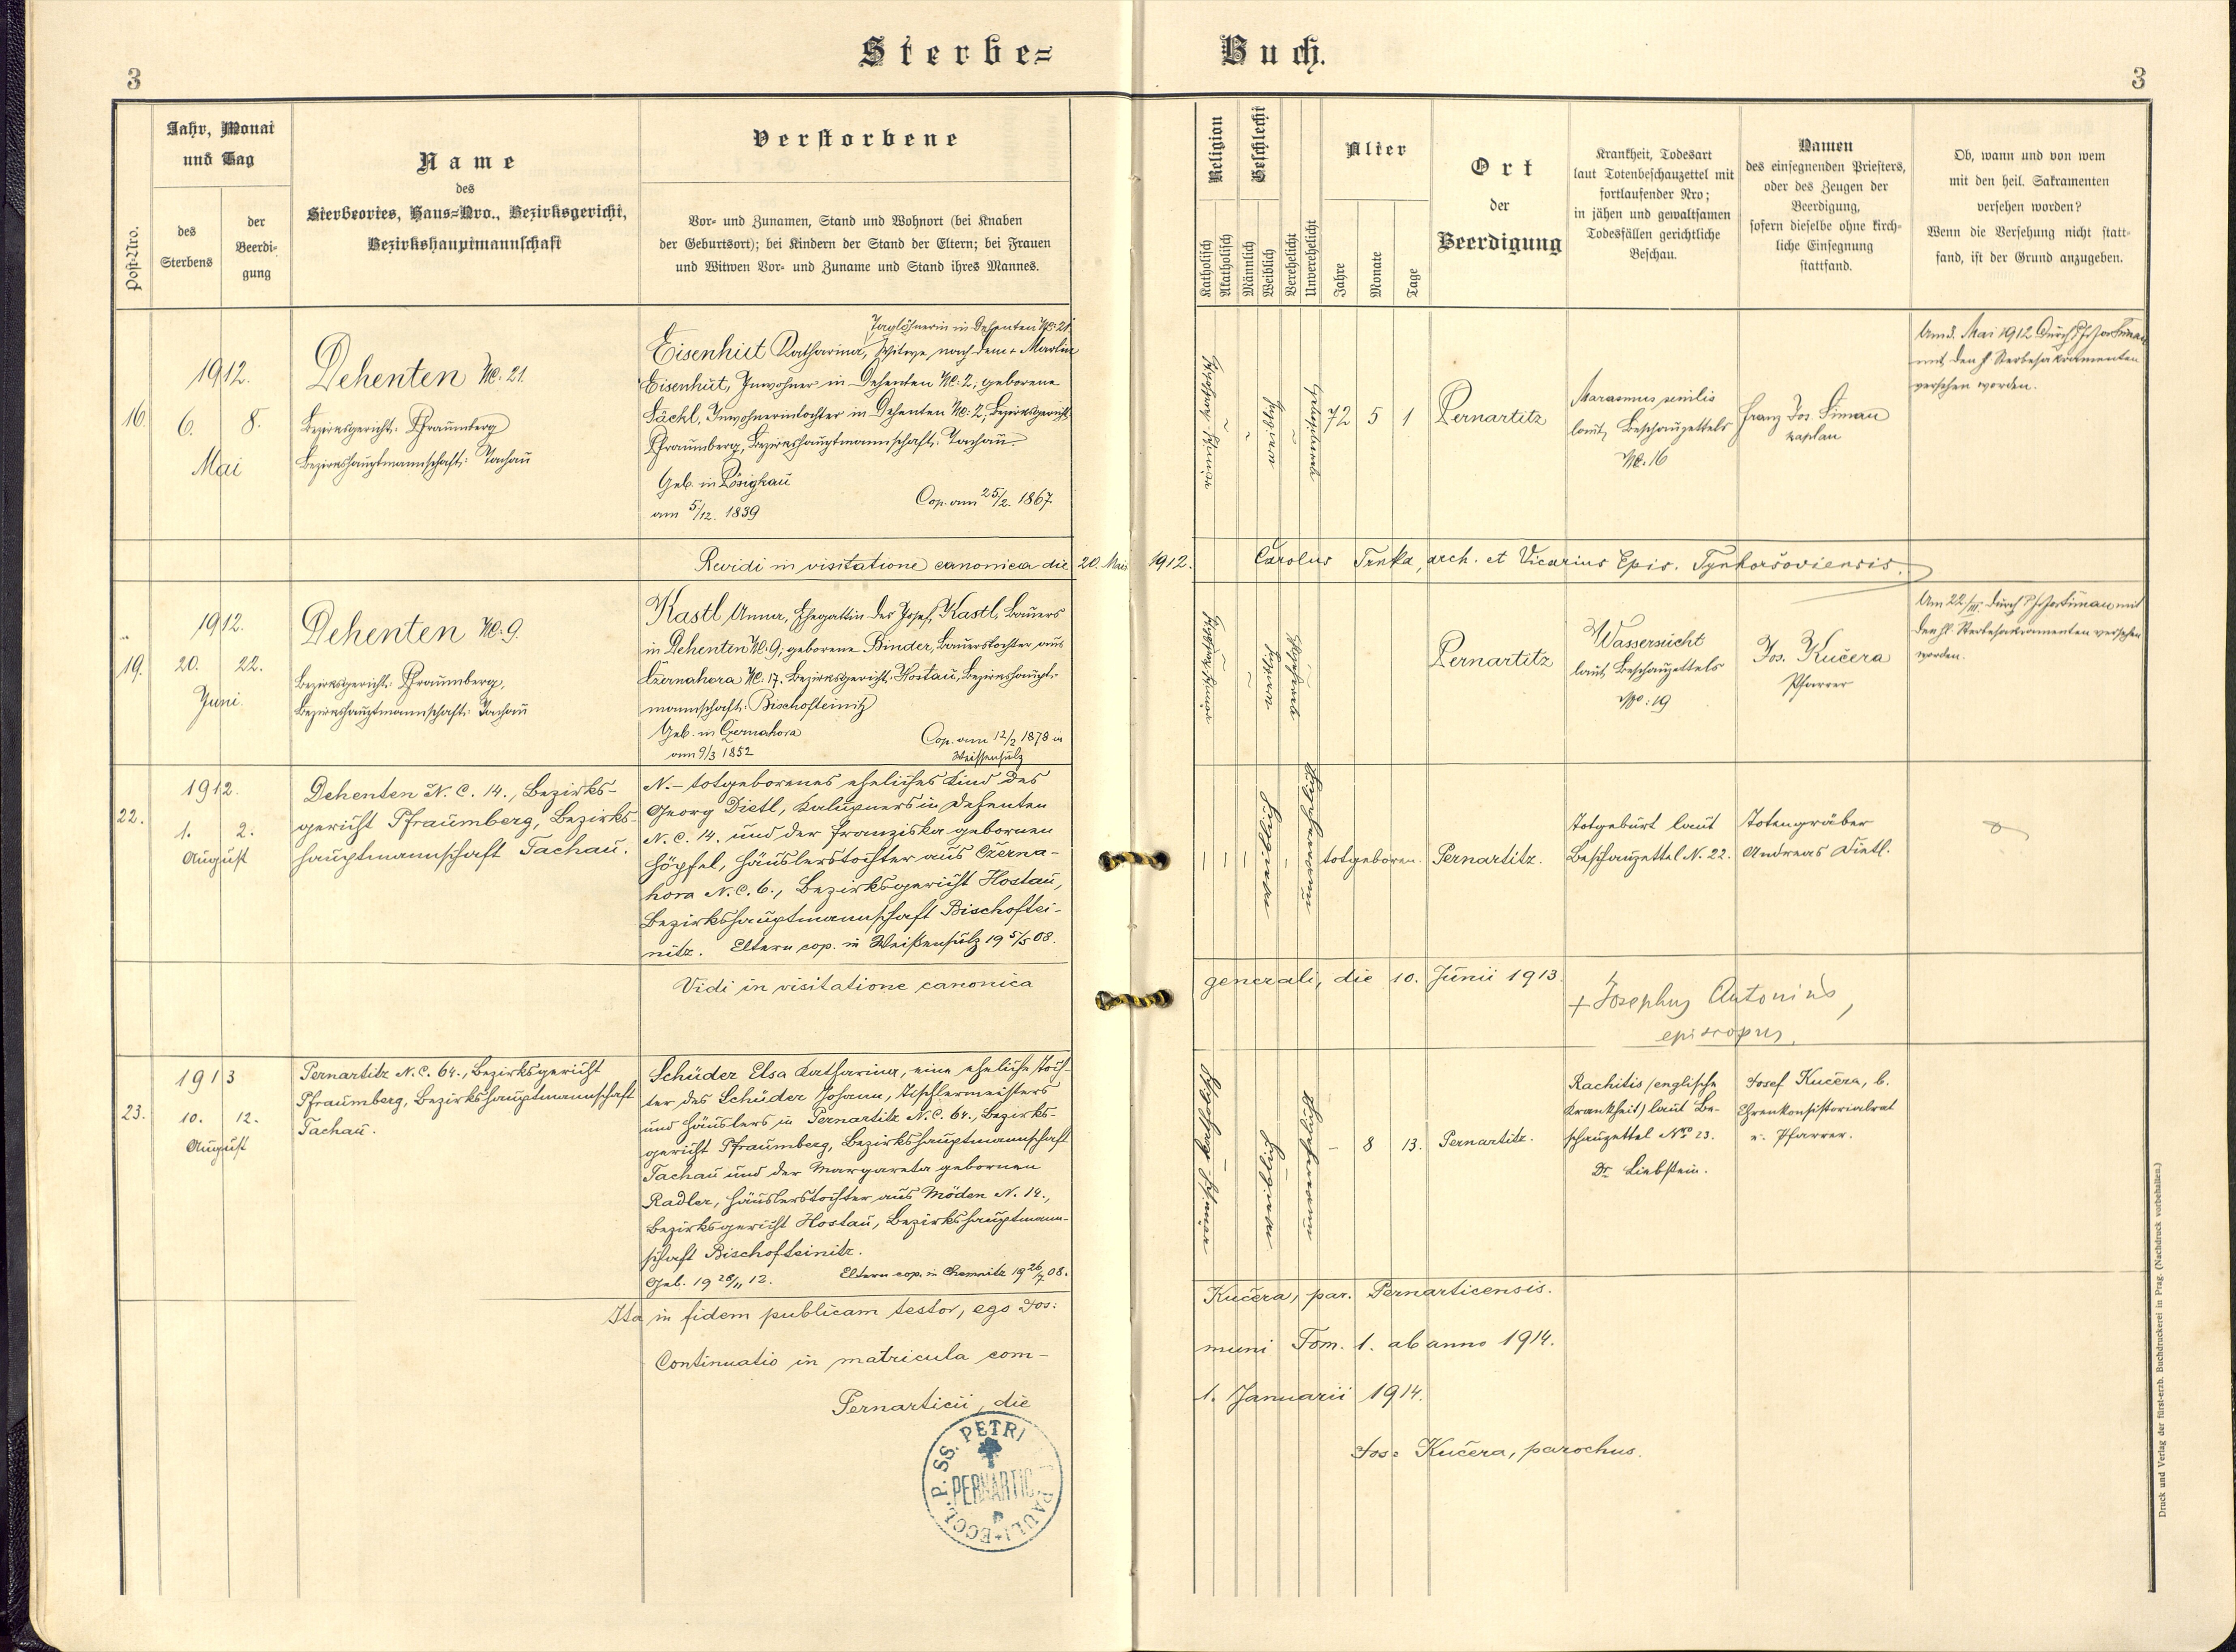 Sterbe=
Buch.
3
3
Post-Nro.
Jahr, Monat
und Tag
des
Sterbens
der
Beerdi-
gung
Name
des
Sterbeortes, Haus=Nro., Bezirksgericht,
Bezirkshauptmannschaft
Verstorbene
Vor- und Zunamen, Stand und Wohnort (bei Knaben
der Geburtsort); bei Kindern der Stand der Eltern; bei Frauen
und Witwen Vor- und Zuname und Stand ihres Mannes.
Religion
Katholisch
Akatholisch
Geschlecht
Männlich
Weiblich
Verehelicht
Unverehelicht
Alter
Jahre
Monate
Tage
Ort
der
Beerdigung
Krankheit, Todesart
laut Totenbeschauzettel mit
fortlaufender Nro;
in jähen und gewaltsamen
Todesfällen gerichtliche
Beschau.
Namen
des einsegnenden Priesters,
oder des Zeugen der
Beerdigung,
sofern dieselbe ohne kirch-
liche Einsegnung
stattfand.
Ob, wann und von wem
mit den heil. Sakramenten
versehen worden?
Wenn die Versehung nicht statt-
fand, ist der Grund anzugeben.
16.
1912.
6. 8.
Mai
Dehenten Nc. 21.
Bezirksgericht: Pfraumberg
Bezirkshauptmannschaft: Tachau
Taglöhnerin in Dehenten Nc. 21.
Eisenhut Katharina, Witwe nach dem + Martin
Eisenhut, Inwohner in Dehenten Nc: 2; geborene
Inwohnerintochter in Dehenten Nc: 2, Bezirksgericht
Pfraumberg, Bezirkshauptmannschaft: Tachau
Geb. in Pösigkau
am 5/12. 1839
Cop. am 25/2. 1867.
72 5 1
Pernartitz
Marasmus senilis
laut Beschauzettels
Nc. 16
Franz Jos. Šiman
kaplan
Mai 1912 durch
mit den hl Sterbesakramenten
versehen worden.
Revidi in visitatione canonica die 20. Maii 1912. Carolus Trnka, arch. et Vicarius Epis. Tynhoršoviensis.
19.
1912.
20. 22.
Juni.
Dehenten Nc. 9.
Bezirksgericht: Pfraumberg,
Bezirkshauptmannschaft: Tachau
Kastl Anna, Ehegattin des Josef Kastl, Bauers
in Dehenten Nc. 9; geborene Binder, Bauerstochter aus
Czernahora Nc. 17. Bezirksgericht: Hostau, Bezirkshaupt-
mannschaft: Bischofteinitz
Geb. in Czernahora
am 9/3 1852
Cop. am 12/2 1878 in
Weissensulz
Pernartitz
Wassersucht
laut Beschauzettels
No: 19
Jos. Kučera
Pfarrer
Am 22/III. durch mit
den hl. Sterbesakramenten versehen
worden.
22.
1912.
1. 2.
August
Dehenten N. C. 14., Bezirks-
gericht Pfraumberg, Bezirks-
hauptmannschaft Tachau.
N. – totgeborenes eheliches Kind des
Georg Dietl, Kalupners in Dehenten
N. C. 14. und der Franziska gebornen
Höpfel, Häuslerstochter aus Czerna-
hora N. C. 6., Bezirksgericht Hostau,
Bezirkshauptmannschaft Bischoftei-
nitz. Eltern cop. in Weißensulz 19 5/5 08.
– – – weiblich – unverehelicht
totgeboren.
Pernartitz.
Totgeburt laut
Beschauzettel N. 22.
Totengräber
Andreas Dietl.
Vidi in visitatione canonica
generali, die 10. Junii 1913.
+ Josephus Antonius,
episcopus.
23.
1913
10. 12.
August
Pernartitz N. C. 64., Bezirksgericht
Pfraumberg, Bezirkshauptmannschaft
Tachau.
Schüder Elsa Katharina, eine eheliche Toch-
ter des Schüder Johann, Tischlermeisters
und Häuslers in Pernartitz N. C. 64., Bezirks-
gericht Pfraumberg, Bezirkshauptmannschaft
Tachau und der Margareta gebornen
Radler, Häuslerstochter aus Möden N. 14.,
Bezirksgericht Hostau, Bezirkshauptmann-
schaft Bischofteinitz.
Geb. 19 28/11 12. Eltern cop. in Chemnitz 19 26/7 08.
– 8 13.
Pernartitz.
Rachitis (englische
Krankheit) laut Be-
schauzettel Nro 23.
Dr. Liebstein.
Josef Kučera, b.
Ehrenkonsistorialrat
u. Pfarrer.
Ita in fidem publicam testor, ego Jos:
Kučera, par. Pernarticensis.
Continuatio in matricula com-
muni Tom. 1. ab anno 1914.
Pernarticii, die
1. Januarii 1914.
Jos: Kučera, parochus.
ECCL. P. SS. PETRI PAULI
PERNARTIC
Druck und Verlag der fürst-erzb. Buchdruckerei in Prag. (Nachdruck vorbehalten.)